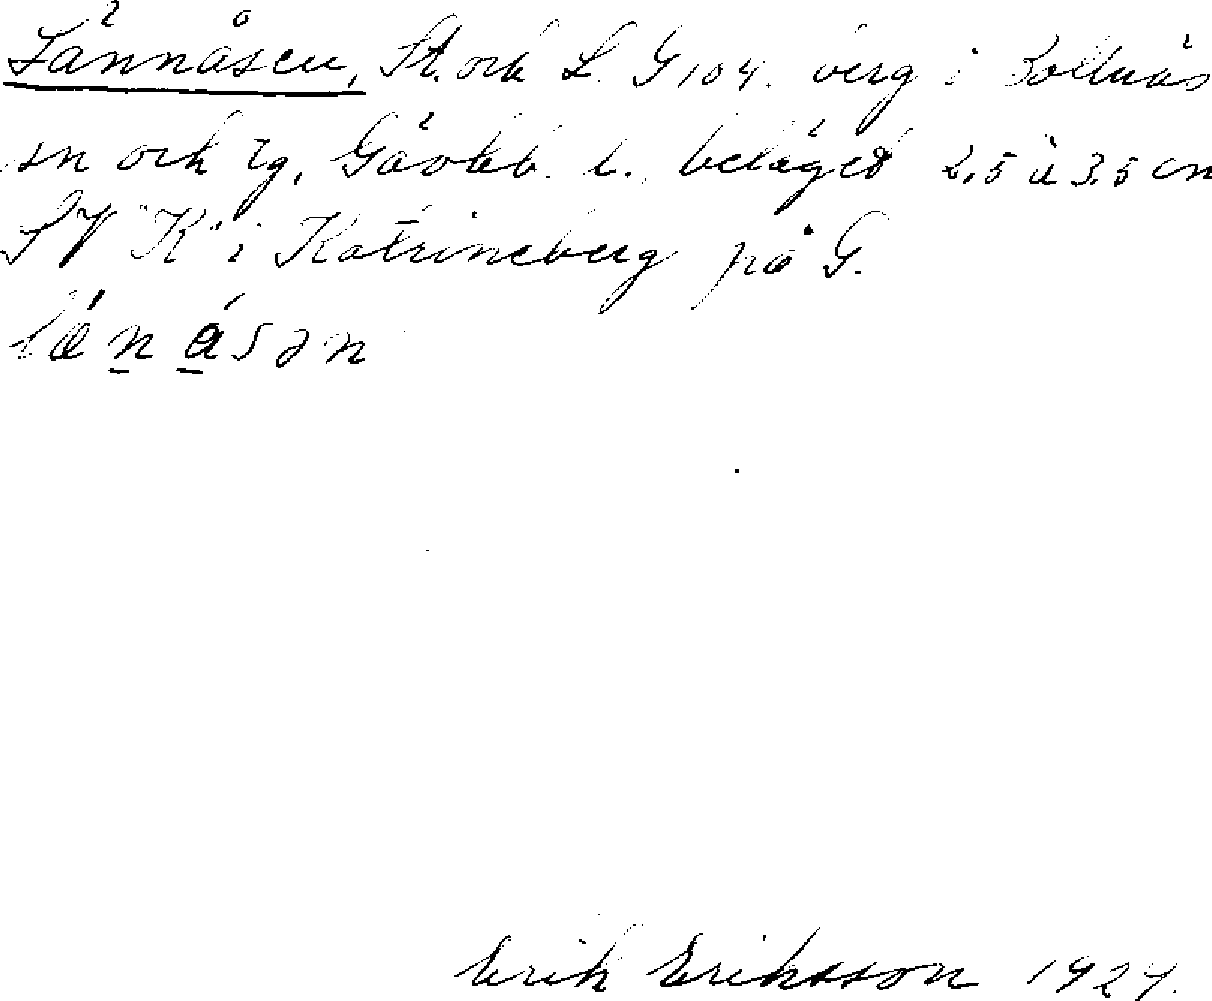 Lännåsen, St. och L. G 104. berg i Bollnäs
sn och tg, Gävleb. l., beläget 2,5 à 3,5 cm
SV "K" i Katrineberg på G.
Erik Eriksson 1927.